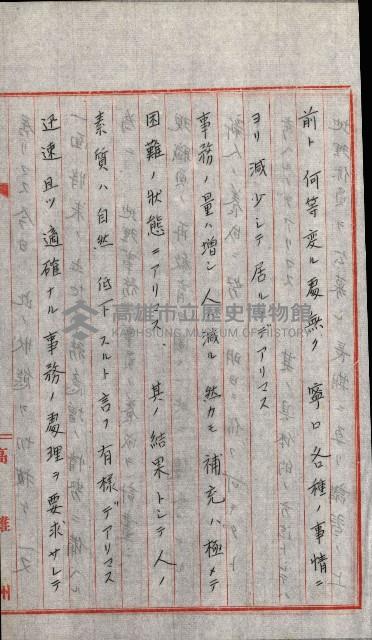 前ト何等変ル處無ク寧ロ各種ノ事情ニ
ヨリ減少シテ居ルデアリマス
事務ノ量ハ増シ人ハ減ル然カモ補充ハ極メテ
困難ノ状態ニアリマス 其ノ結果トシテ人ノ
素質ハ自然低下スルト言フ有様デアリマス
迅速且ツ適確ナル事務ノ處理ヲ要求サレテ
高雄州
高雄市立歷史博物館
KAOHSIUNG MUSEUM OF HISTORY